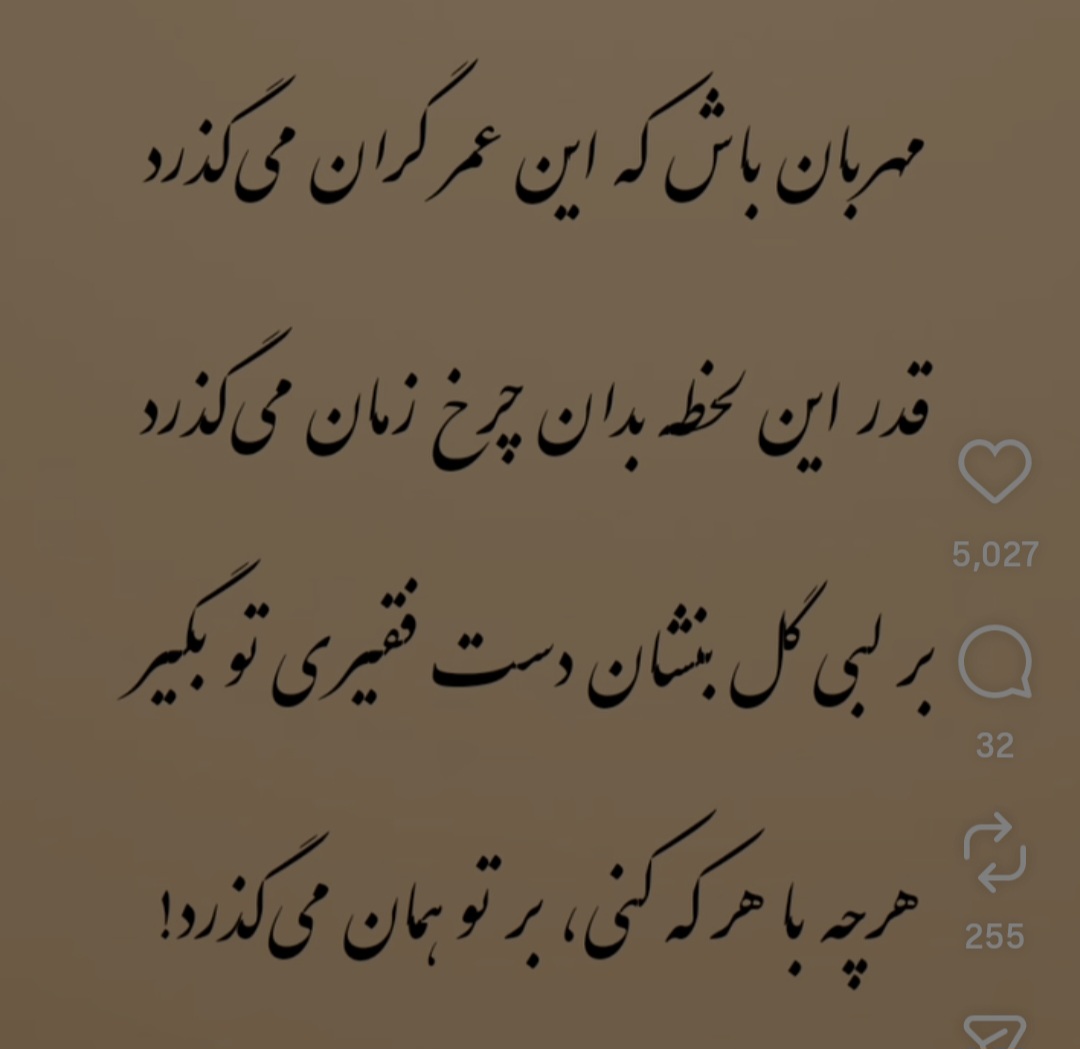 مهربان باش که این عمر گران می‌گذرد
قدر این لحظه بدان چرخ زمان می‌گذرد
بر لبی گل بنشان دست فقیری تو بگیر
هرچه با هر که کنی، بر تو همان می‌گذرد!
5,027
32
255